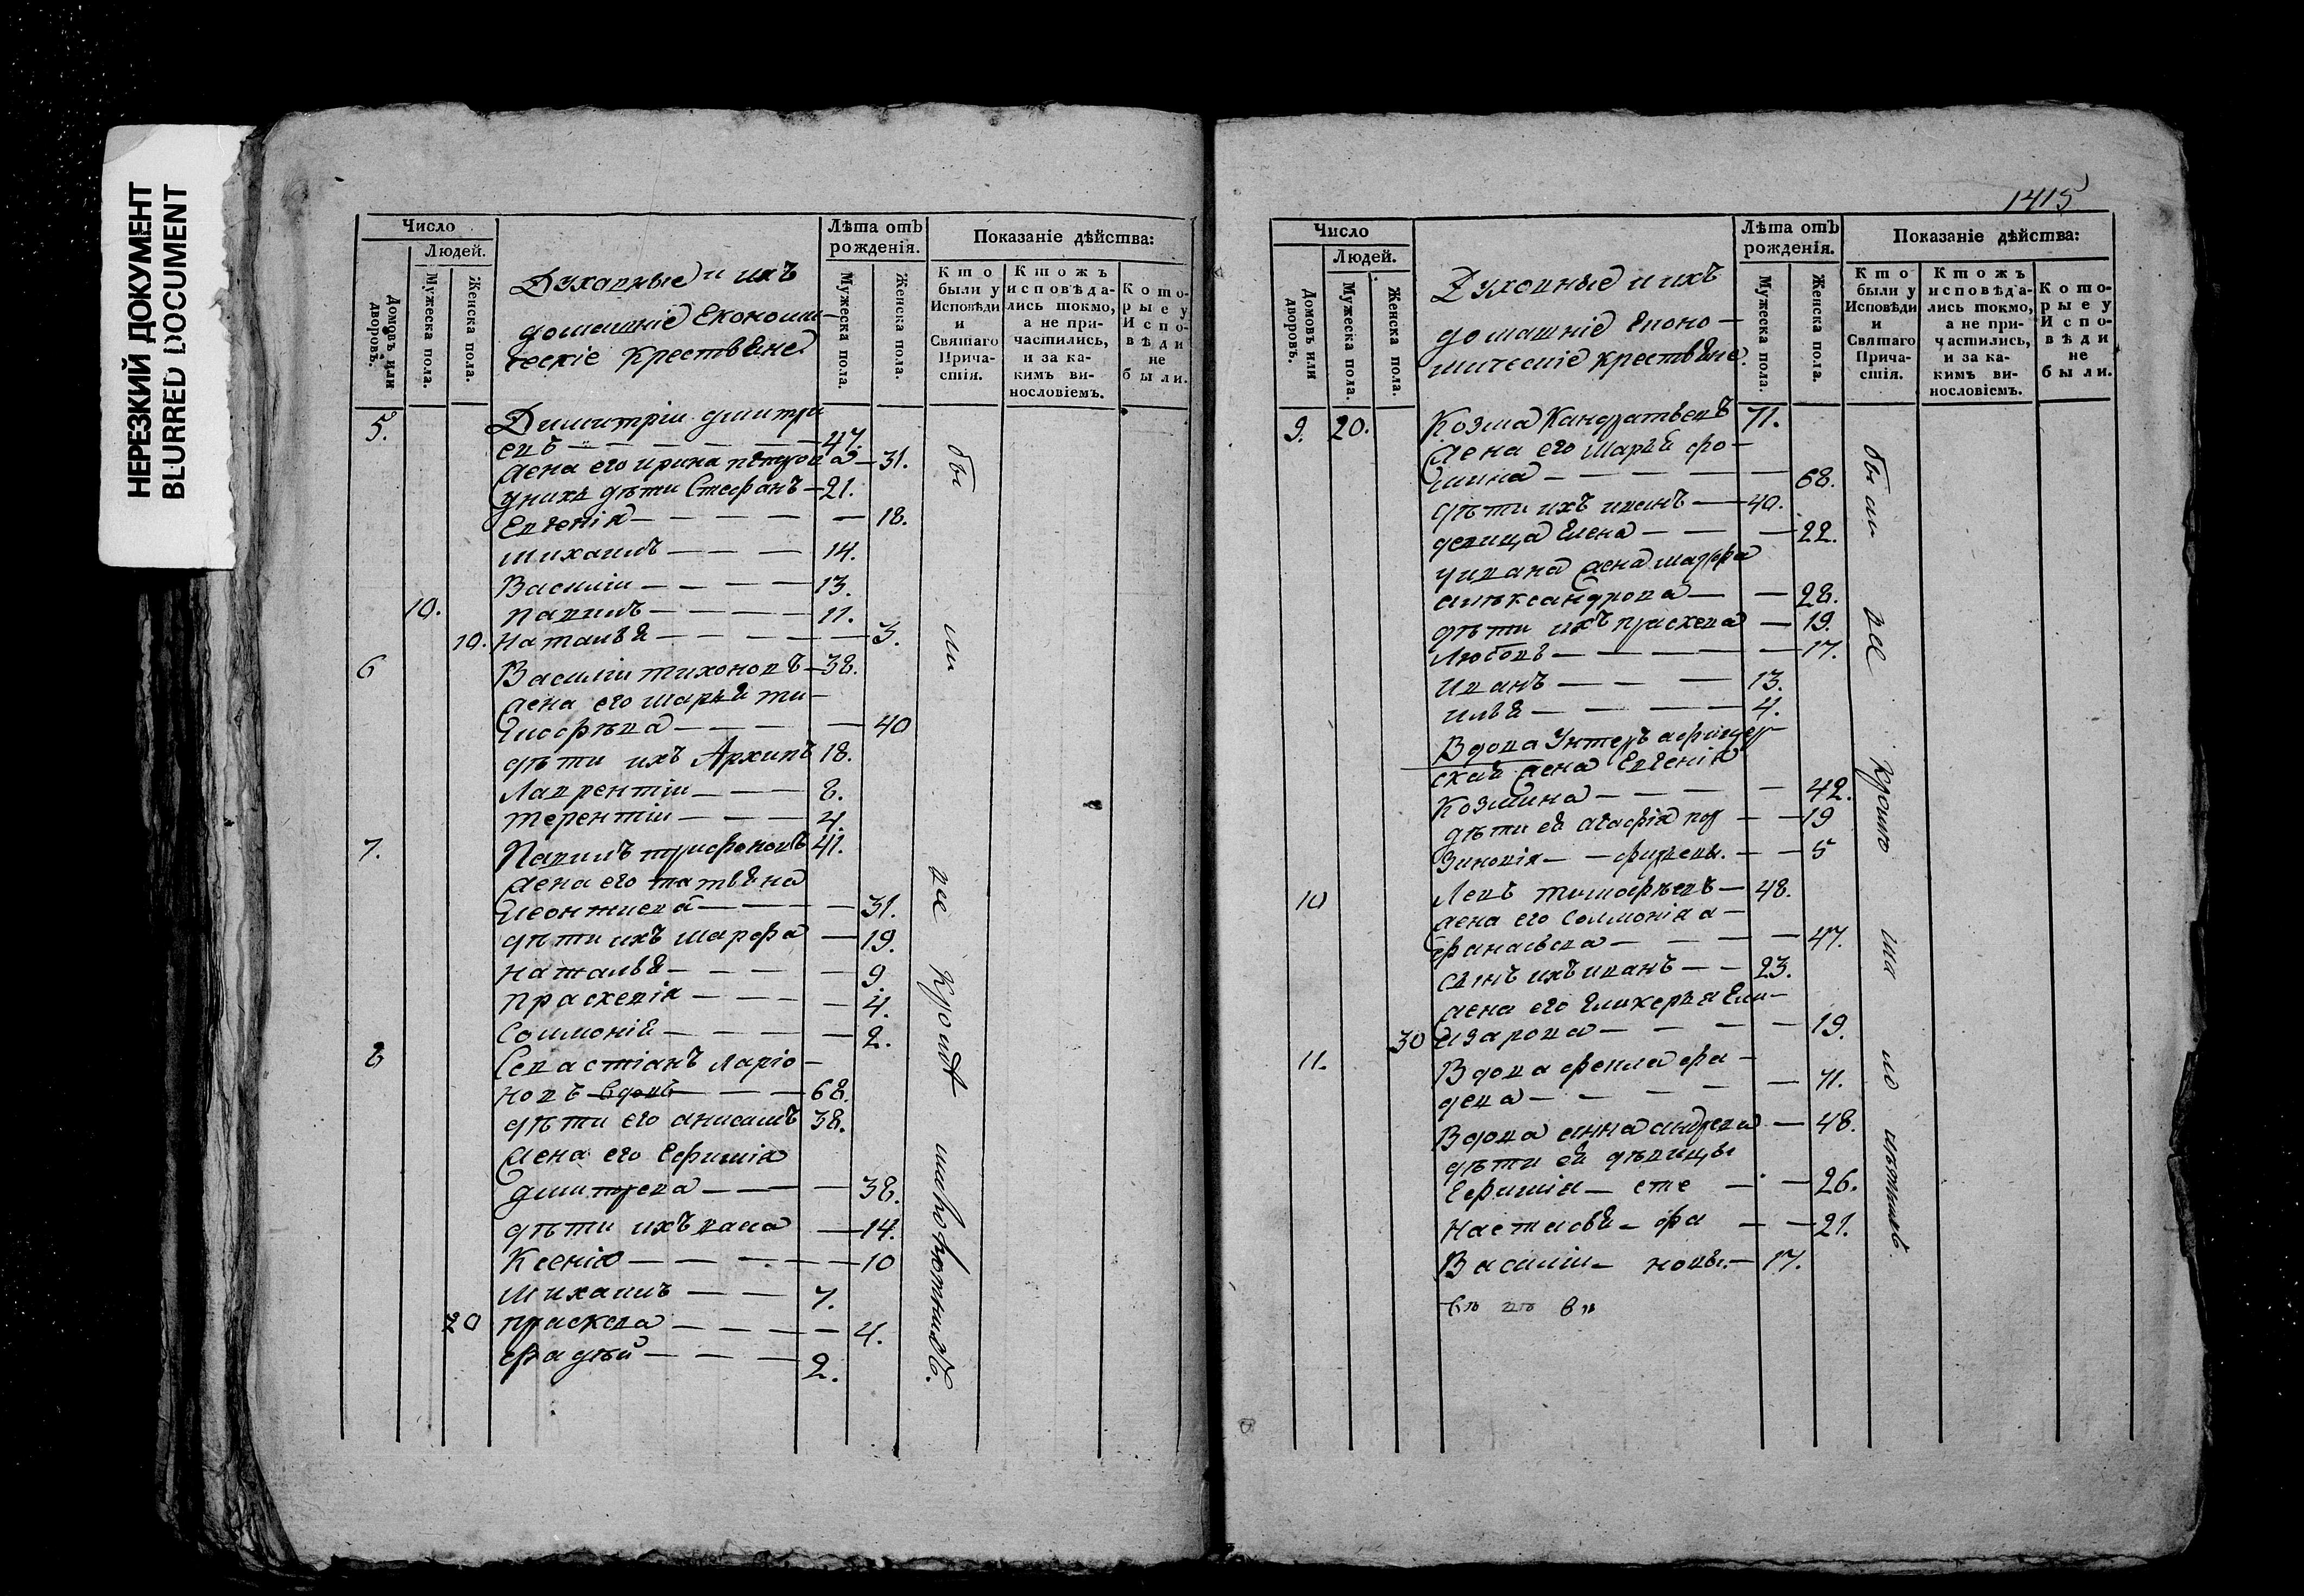 НЕРЕЗКИЙ ДОКУМЕНТ
BLURRED DOCUMENT
Число
Людей.
Домовъ или дворовъ.
Мужеска пола.
Женска пола.
Духовные и ихъ
домашніе Економи-
ческіе крестьяне
Лѣта отъ рожденія.
Мужеска пола.
Женска пола.
Показаніе дѣйства:
Кто были у Исповѣди и Святаго Причастія.
Ктожъ исповѣдались токмо, а не причастились, и за какимъ винословіемъ.
Которые у Исповѣди не были.
5. Димитріи дмитри
евъ 47.
жена его ирина петрова 31.
у нихъ дѣти Стефанъ 21.
Евгенія 18.
михаилъ 14.
Василіи 13.
10. павилъ 11.
10. наталья 3.
6 Василіи тихоновъ 38.
жена его марья ти-
мофѣева 40
дѣти ихъ Архипъ 18.
Лаврентіи 8.
терентіи 4.
7. Павилъ трифоновъ 41.
жена его татьяна
леонтиева 31.
дѣти ихъ марфа 19.
наталья 9.
прасковія 4.
соломонія 2.
8 Севастіанъ ларіо-
новъ вдовъ 68.
дѣти его анисимъ 38.
жена его Ефимія
дмитрева 38.
дѣти ихъ 14.
Ксенія 10
михаилъ 7.
20 праскева 4.
фадѣй 2.
бы ли все кромѣ малолѣтныхъ.
1415
Число
Людей.
Домовъ или дворовъ.
Мужеска пола.
Женска пола.
Духовные и ихъ
домашніе еконо-
мическіе крестьяне
Лѣта отъ рожденія.
Мужеска пола.
Женска пола.
Показаніе дѣйства:
Кто были у Исповѣди и Святаго Причастія.
Ктожъ исповѣдались токмо, а не причастились, и за какимъ винословіемъ.
Которые у Исповѣди не были.
9. 20. Козма Кандратьевъ 71.
жена его марья фо-
мина 68.
дѣти ихъ иванъ 40.
девица Елена 22.
у ивана жена марфа
алѣксандрова 28.
дѣти ихъ праскева 19.
Любовь 17.
иванъ 13.
илья 4.
Вдова Унтеръ афицер
ская жена Евгенія
Козмина 42.
дѣти ея агафія 19
Зиновія 5
10 Левъ тимофѣевъ 48.
жена его соломонія а-
фанасьева 47.
сынъ ихъ иванъ 23.
жена его гликерья ели-
30 изарова 19.
11. Вдова фекла фа-
деева 71.
Вдова анна андрева 48.
дѣти ея дѣвицы
Ефимія сте 26.
Настасья фа 21.
Василіи новы 17.
бы ли все кроме малолѣтныхъ